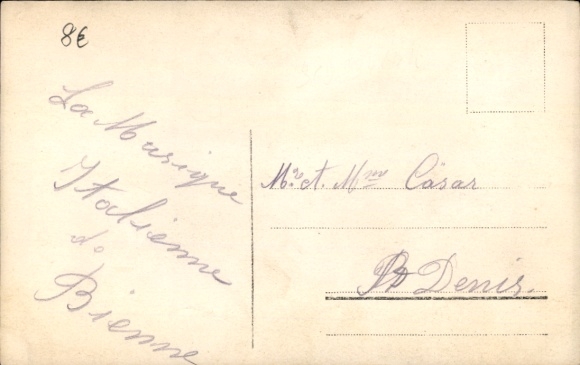 8€
La Musique
Italienne
de
Bienne
Mr. et. Mme Cäsar
Pt Denis.